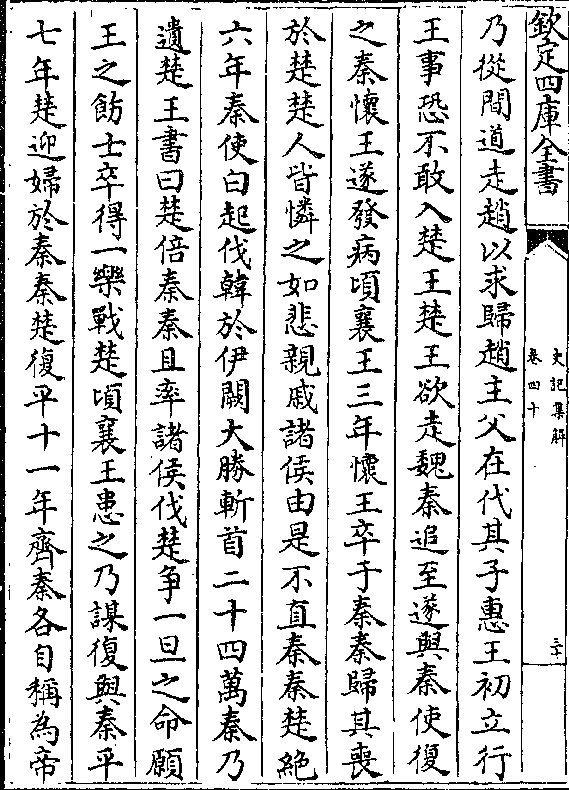 欽定四庫全書
史記集解
卷四十
三十
乃從間道走趙以求歸趙主父在代其子惠王初立行
王事恐不敢入楚王楚王欲走魏秦追至遂與秦使復
之秦懷王遂發病頃襄王三年懷王卒于秦秦歸其喪
於楚楚人皆憐之如悲親戚諸侯由是不直秦秦楚絶
六年秦使白起伐韓於伊闕大勝斬首二十四萬秦乃
遺楚王書曰楚倍秦秦且率諸侯伐楚争一旦之命願
王之飭士卒得一樂戰楚頃襄王患之乃謀復與秦平
七年楚迎婦於秦秦楚復平十一年齊秦各自稱為帝